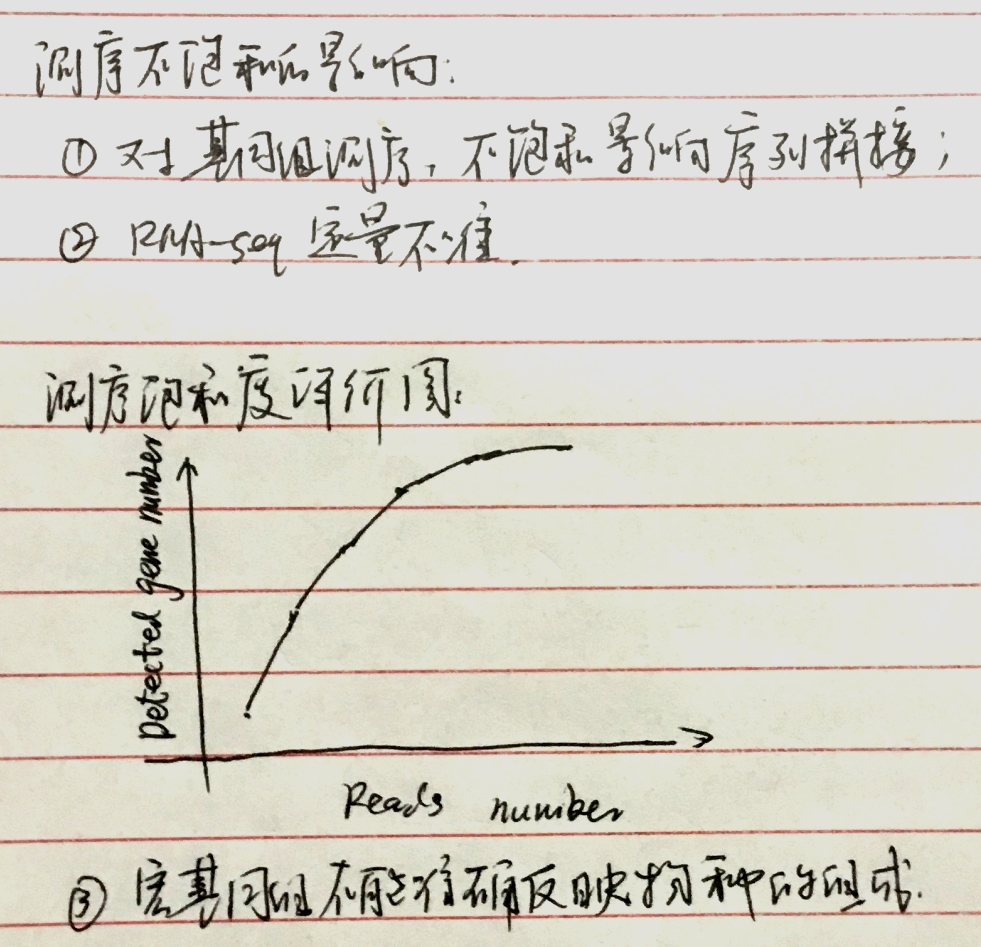 测序不饱和的影响:
① 对基因组测序，不饱和影响序列拼接；
② RNA-seq 定量不准.
测序饱和度评价图:
Detected gene number
Reads number
③ 宏基因组不能准确反映物种的组成.